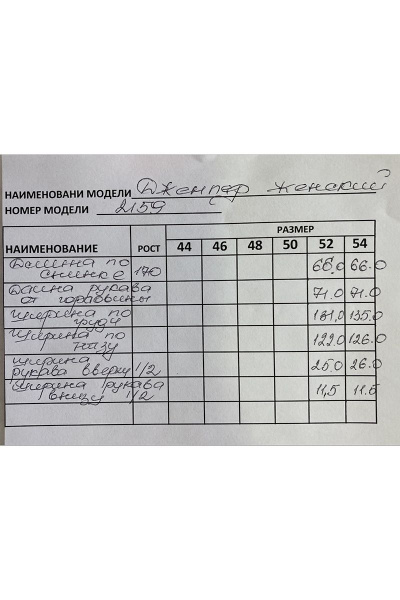 НАИМЕНОВАНИ МОДЕЛИ Джемпер женский
НОМЕР МОДЕЛИ 2159
РАЗМЕР
НАИМЕНОВАНИЕ РОСТ 44 46 48 50 52 54
Длина по
спинке 170 66.0 66.0
Длина рукава
от горловины 71.0 71.0
Ширина по
груди 131.0 135.0
Ширина по
низу 122.0 126.0
ширина
рукава вверху 1/2 25.0 26.0
ширина рукава
внизу 1/2 11,5 11.5